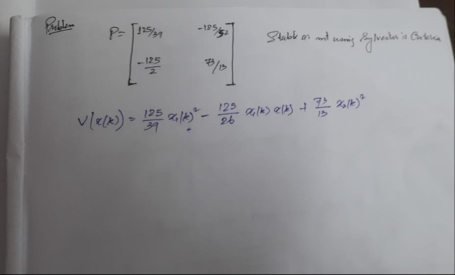 Problem
P = [ 125/39 -125/52
-125/2 73/13 ]
Stable or not using Sylvester's Criterion
V(x(k)) = 125/39 x₁(k)² - 125/26 x₁(k) x(k) + 73/13 x₂(k)²